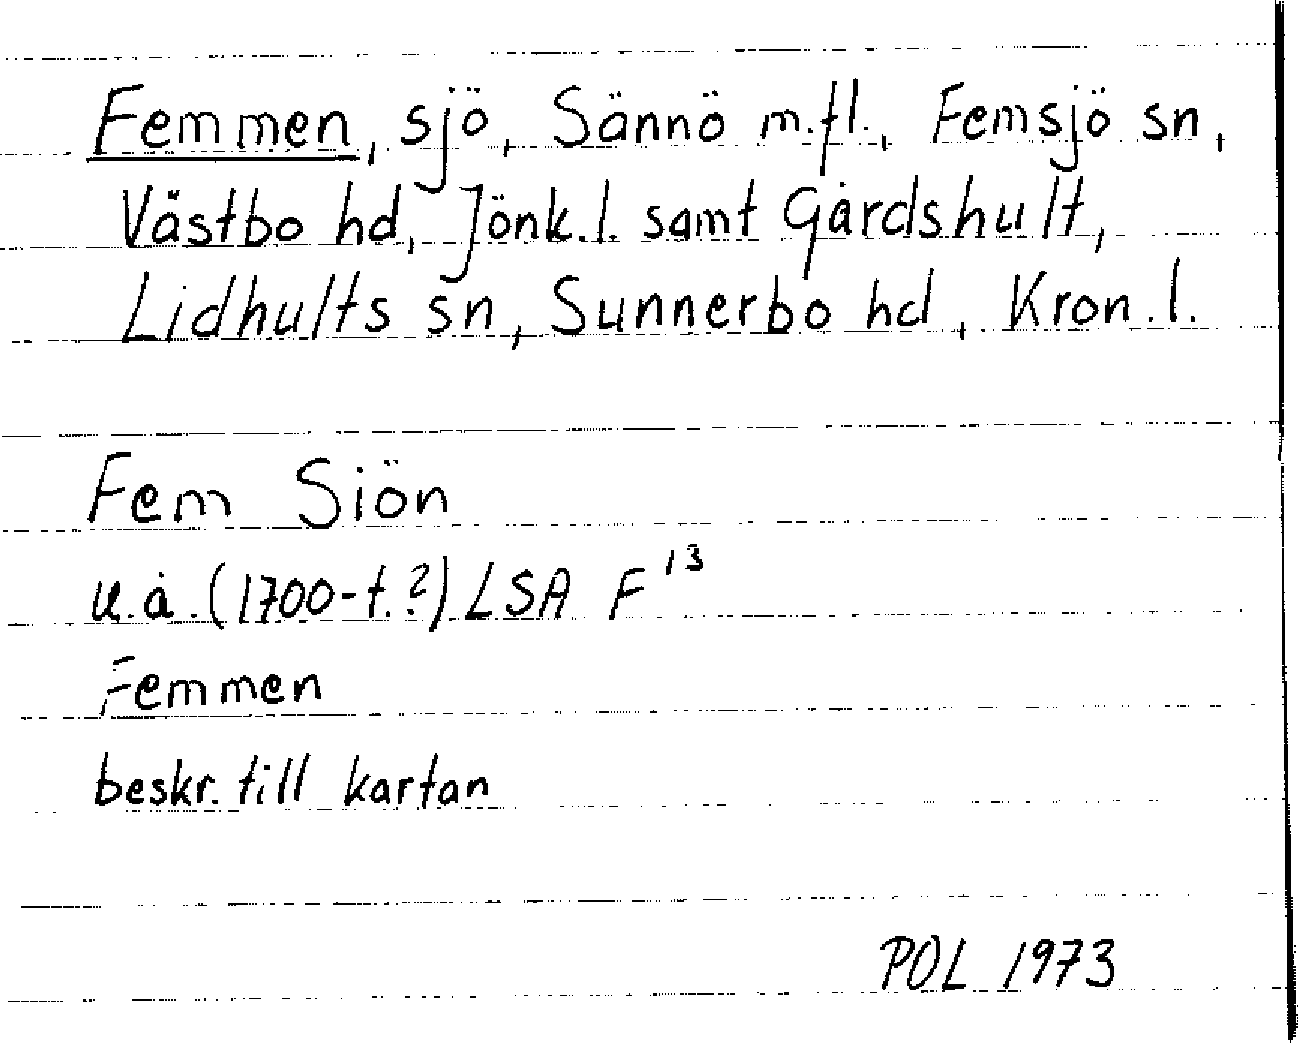 Femmen, sjö, Sännö m.fl., Femsjö sn,
Västbo hd, Jönk.l. samt Gårdshult,
Lidhults sn, Sunnerbo hd, Kron.l.
Fem Siön
u.å. (1700-t.?) LSA F¹³
Femmen
beskr. till kartan
POL 1973